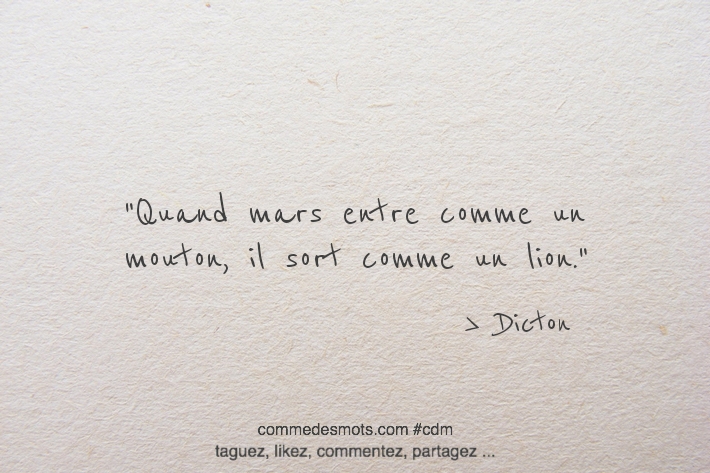 "Quand mars entre comme un
mouton, il sort comme un lion."
> Dicton
commedesmots.com #cdm
taguez, likez, commentez, partagez ...